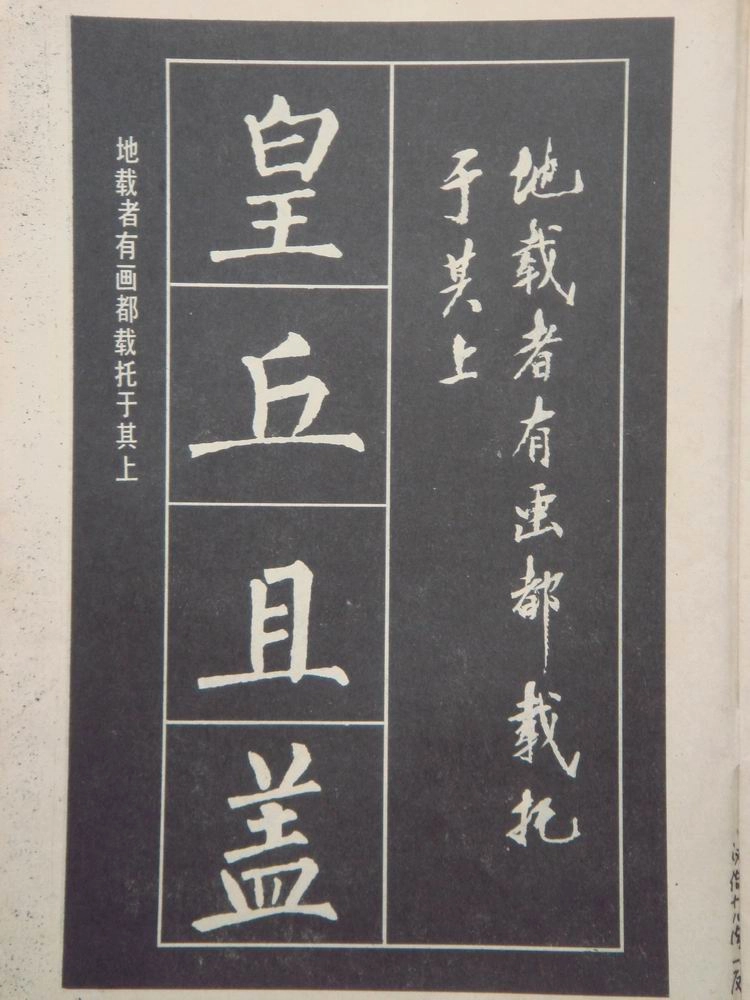 地载者有画都载托
于其上
皇
丘
且
盖
地载者有画都载托于其上